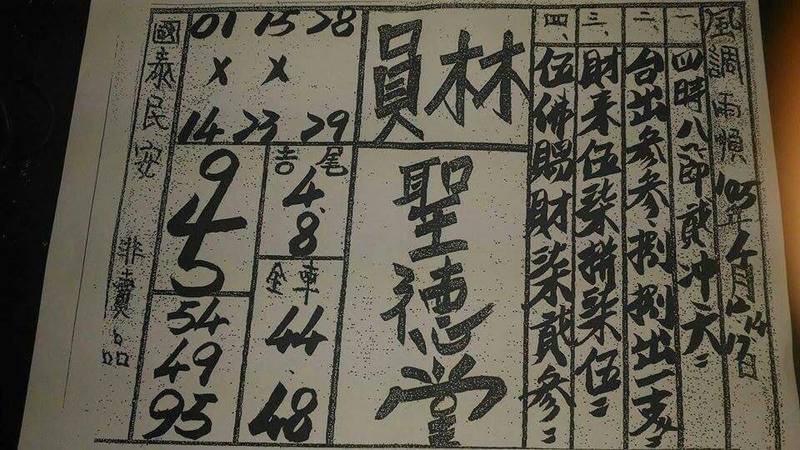 風調雨順 105年
一、四時八節貳冲天
二、台出参参捌捌出一支
三、財来伍柒拼柒伍
四、伍佛賜財柒貳参
員林
聖德堂
01 15 28
X X
14 23 29
吉尾
4.8
全車
44.48
945
54
49
95
國泰民安 非賣品